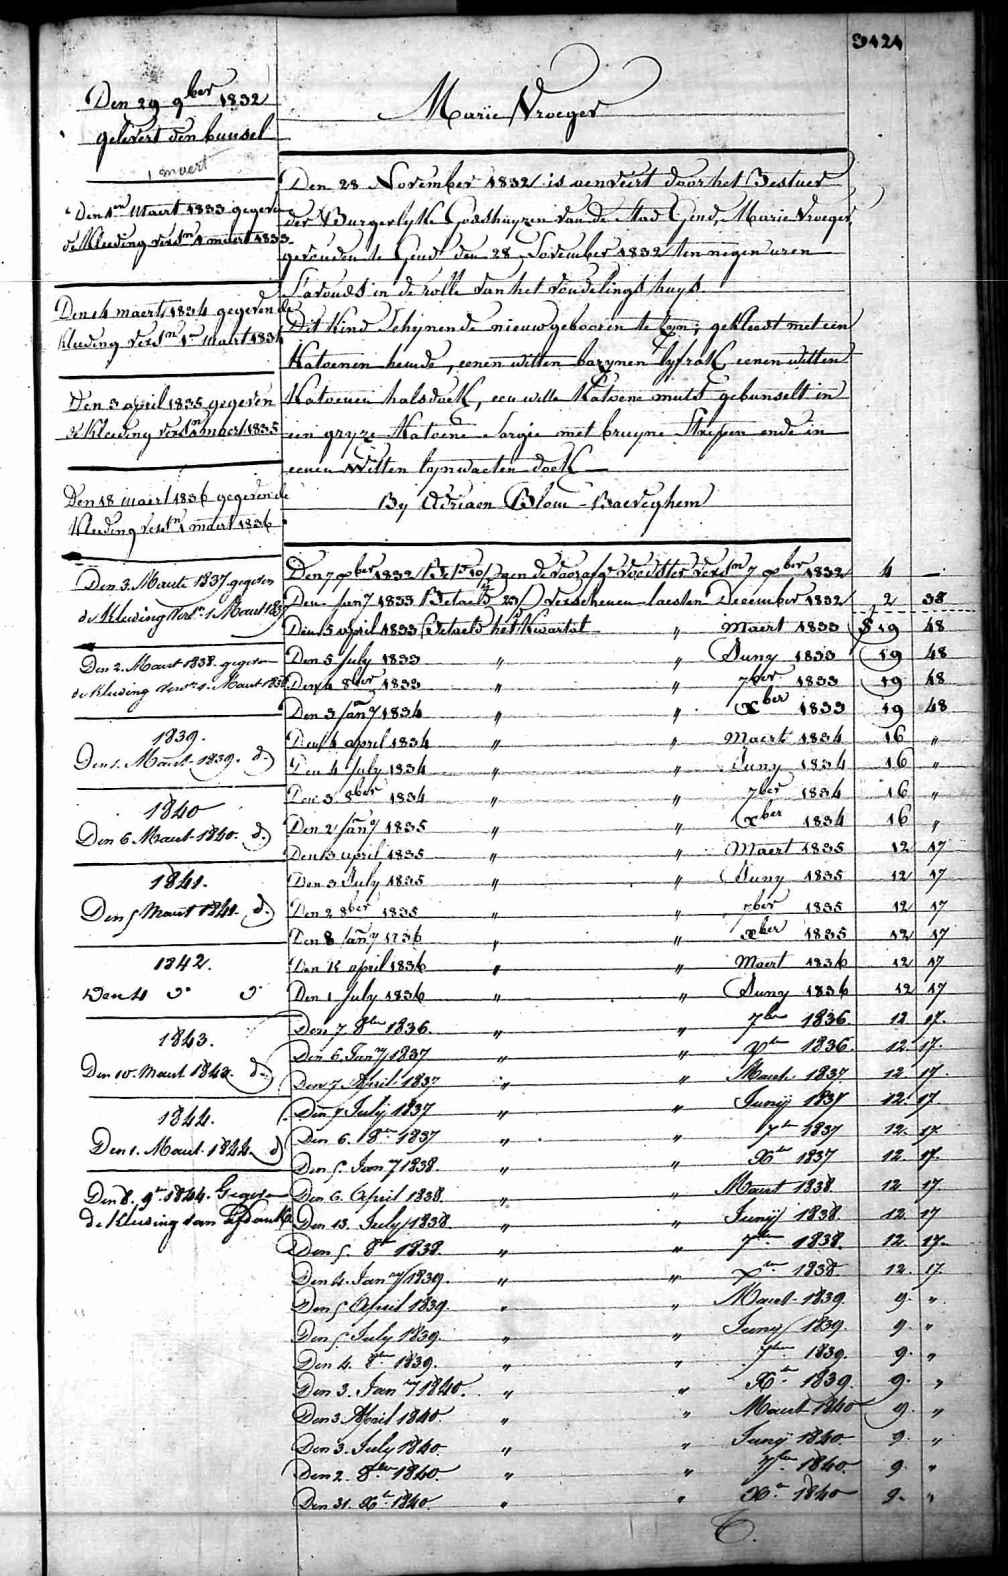 9424
Marie Vroeger
Den 29 9ber 1832
gelevert den bunsel
1 maert
Den 1en Maert 1833 gegeven
de Kleeding versn 1 maert 1833
Den 14 maert 1834 gegeven de
Kleeding versn 1en maert 1834
Den 3 april 1835 gegeven
de Kleeding versn 1 maert 1835
Den 18 maert 1836 gegeven de
Kleeding versn 1 maert 1836
Den 3. Maerte 1837 gegeven
de Kleeding versn. 1. Maert 1837
Den 2. Maert 1838. gegeven
de Kleeding versn. 1. Maert 1838
1839.
Den 1. Maert 1839. d.
1840
Den 6. Maert 1840. d.
1841.
Den 5 Maert 1841. d.
1842.
Den 4 d° d°
1843.
Den 10. Maert 1843. d.
1844.
Den 1. Maert 1844. d
Den 8. 9r. 1844. Gegeven
de Kleeding van
Den 28 November 1832 is aenveirt door het Bestuer
der Burgerlyke Godshuyzen van de Stad Gend, Marie Vroeger,
gevonden te Gend den 28 November 1832 ten negen uren
s'avonds in de rolle van het vondelings huys.
Dit Kind schynende nieuwgebooren te zyn; gekleedt met een
Katoenen hemde, eenen witten bazynen lyfrok, eenen witten
Katoenen halsdoek, een witte Katoene muts gebunselt in
een gryze Katoene sargie met bruyne strepen ende in
eenen witten lynwaeten doek
By Adriaen Blom - Baeveghem
Den 7 xber 1832 de voorafg voedster versn 7 xber 1832 4 —
Den Jany 1833 Betaelt 23 verschenen laesten December 1832 2 38
Den 5 april 1833 Betaelt het Kwartal " Maert 1833 $ 19 48
Den 5 July 1833 " " Juny 1833 19 48
Den 4 8ber 1833 " " 7ber 1833 19 48
Den 3 Jany 1834 " " xber 1833 19 48
Den 4 april 1834 " " Maert 1834 16 "
Den 4 July 1834 " " Juny 1834 16 "
Den 3 8ber 1834 " " 7ber 1834 16 "
Den 2 Jany 1835 " " xber 1834 16 "
Den 13 april 1835 " " Maert 1835 12 17
Den 3 July 1835 " " Juny 1835 12 17
Den 2 8ber 1835 " " 7ber 1835 12 17
Den 8 Jany 1736 " " xber 1835 12 17
Den 15 april 1836 " " Maert 1836 12 17
Den 1 July 1836 " " Juny 1836 12 17
Den 7 8ber 1836. " " 7ber 1836. 12 17.
Den 6. Jany 1837 " " xber 1836. 12. 17.
Den 7. April 1837 " " Maert 1837 12. 17.
Den 7 July 1837 " " Junij 1837 12. 17.
Den 6. 8er 1837 " " 7er 1837 12. 17
Den 5. Jany 1838. " " Xer 1837 12. 17.
Den 6. April 1838. " " Maert 1838. 12. 17.
Den 13. July 1838. " " Junij 1838. 12. 17
Den 5. 8er 1838. " " 7er 1838. 12. 17.
Den 4. Jany 1839. " " xer 1838 12. 17.
Den 5 April 1839. " " Maert 1839. 9. "
Den 5 July 1839. " " Juny 1839. 9. "
Den 4. 8er 1839. " " 7er 1839. 9. "
Den 3. Jany 1840. " " Xer 1839. 9. "
Den 3 April 1840. " " Maert 1840 9. "
Den 3. July 1840. " " Junij 1840. 9. "
Den 2. 8ber 1840. " " 7ber 1840. 9. "
Den 31. Xr 1840. " " Xr 1840 9. "